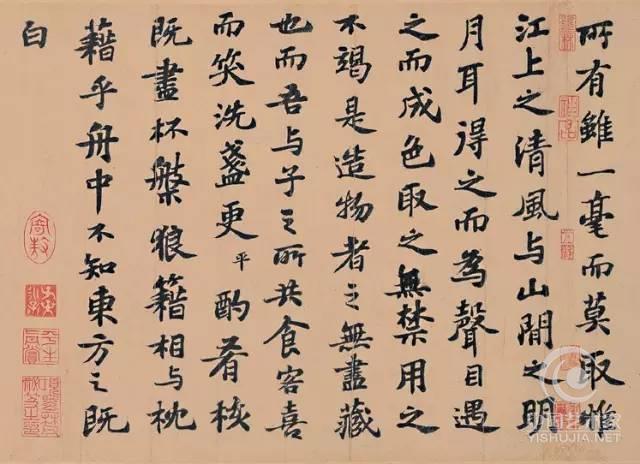 所有雖一毫而莫取惟
江上之清風与山間之明
月耳得之而為聲目遇
之而成色取之無禁用之
不竭是造物者之無盡藏
也而吾与子之所共食客喜
而笑洗盞更平酌肴核
既盡杯槃狼籍相与枕
藉乎舟中不知東方之既
白
中国艺术家
YISHUJIA.NET